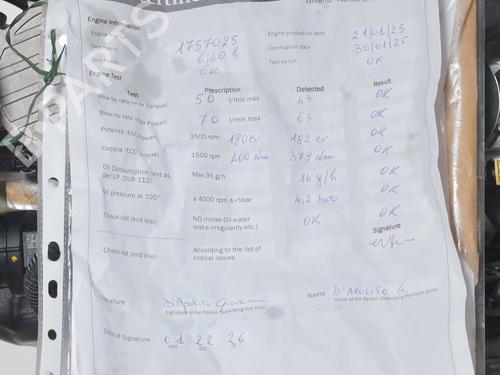 Engine Information
Engine 1757025 Engine production date 21/01/25
Test hours 6,40 h Certification date 30/01/25
OK Test bench OK
Engine Test
Prescription Detected Result
Blow by rate (max Torque) 50 l/min max 43 OK
Blow by rate (max Power) 70 l/min max 63 OK
Potenza (ECC Power) 3500 rpm 180 cv 182 cv OK
Coppia (ECC Torque) 1500 rpm 400 Nm 379 Nm OK
Oil Consumption (test as per I.P. DUR 112) Max 35 g/h 14 g/h OK
Oil pressure at 100° a 4000 rpm 4÷5bar 4,2 bar OK
Check-list (end test) NO (noise-Oil-water leaks-irregularity-etc.) OK OK
Signature
Check-list (end line) According to the list of critical issues
Signature D'Apolito Giovanni Name D'APOLITO G.
Signature of the Person Submitting this Form Name of the Person Submitting this Form (print)
Date of Signature 01 22 26
MM DD